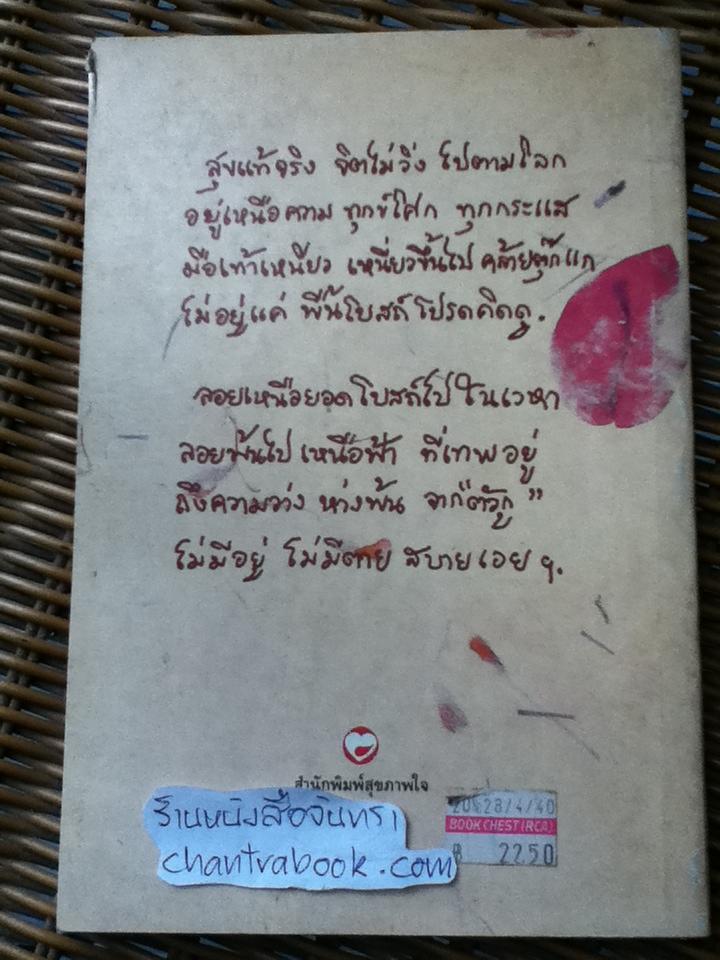 สุขแท้จริง จิตไม่วิ่ง ไปตามโลก
อยู่เหนือความ ทุกข์โศก ทุกกระแส
มือเท้าเหนียว เหนี่ยวขึ้นไป คล้ายตุ๊กแก
ไม่อยู่แค่ พื้นโบสถ์ โปรดคิดดู.
ลอยเหนือยอดโบสถ์ไป ในเวหา
ลอยพ้นไป เหนือฟ้า ที่เทพอยู่
ถึงความว่าง ห่างพ้น จาก"ตัวกู"
ไม่มีอยู่ ไม่มีตาย สบายเอย ฯ.
สำนักพิมพ์สุขภาพใจ
ร้านหนังสือจันทรา
chantrabook.com
28/4/40
BOOK CHEST (RCA)
฿ 22.50